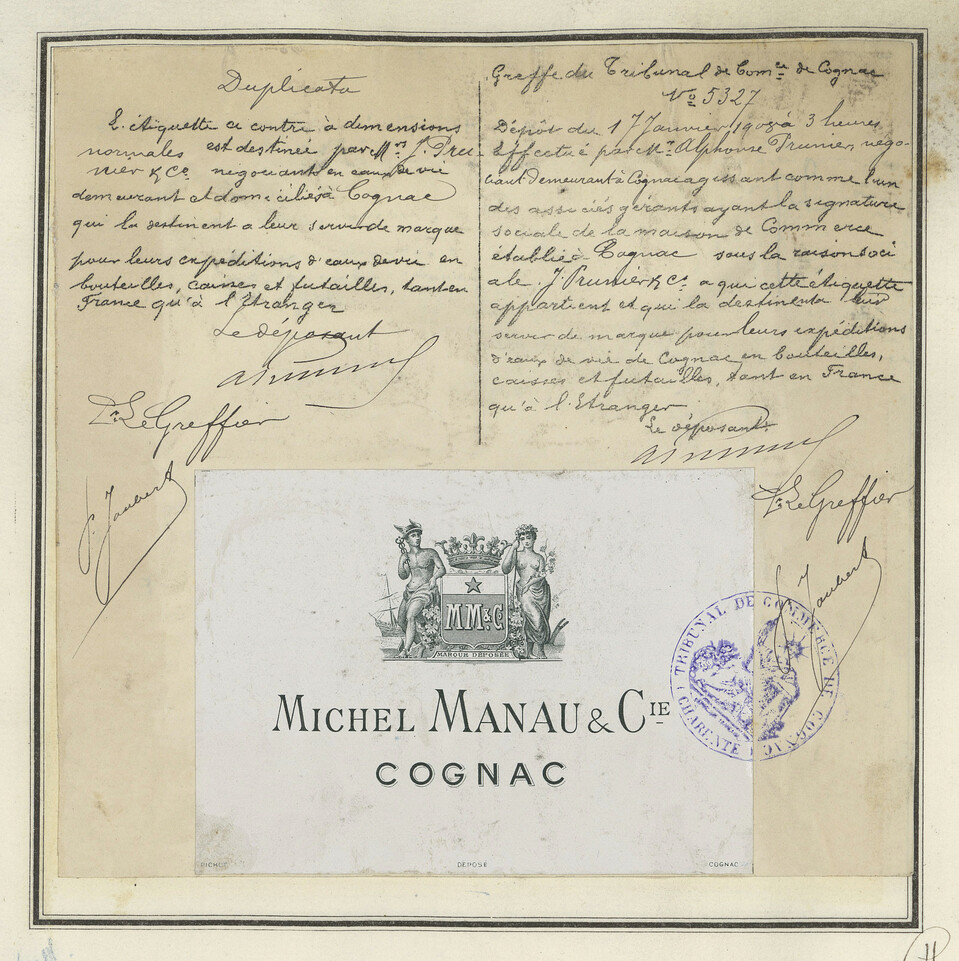 Duplicata
L'étiquette ci contre à dimensions
normales est destinée par Mrs J. Pru-
nier & Co négociant en eaux de vie
demeurant et domiciliés à Cognac
qui la destinent a leur servir de marque
pour leurs expéditions d'eaux de vie en
bouteilles, caisses et futailles, tant en
France qu'à l'Etranger
Le déposant
Pr Le Greffier
J. Joubert
Greffe du Tribunal de Comce de Cognac
No 5327
Dépôt du 17 Janvier à 3 heures
Effectué par Mr Alphonse Prunier, négo-
ciant demeurant à Cognac agissant comme l'un
des associés gérants ayant la signature
sociale de la maison de Commerce
établie à Cognac sous la raison soci
ale J. Prunier & Co a qui cette étiquette
appartient et qui la destinent a leur
servir de marque pour leurs expéditions
d'eaux de vie de Cognac en bouteilles,
caisses et futailles, tant en France
qu'à l'Etranger
Le déposant
Pr Le Greffier
J. Joubert
MM & Co
MARQUE DÉPOSÉE
MICHEL MANAU & CIE
COGNAC
DÉPOSÉ
COGNAC
TRIBUNAL DE COMMERCE DE COGNAC
(CHARENTE)